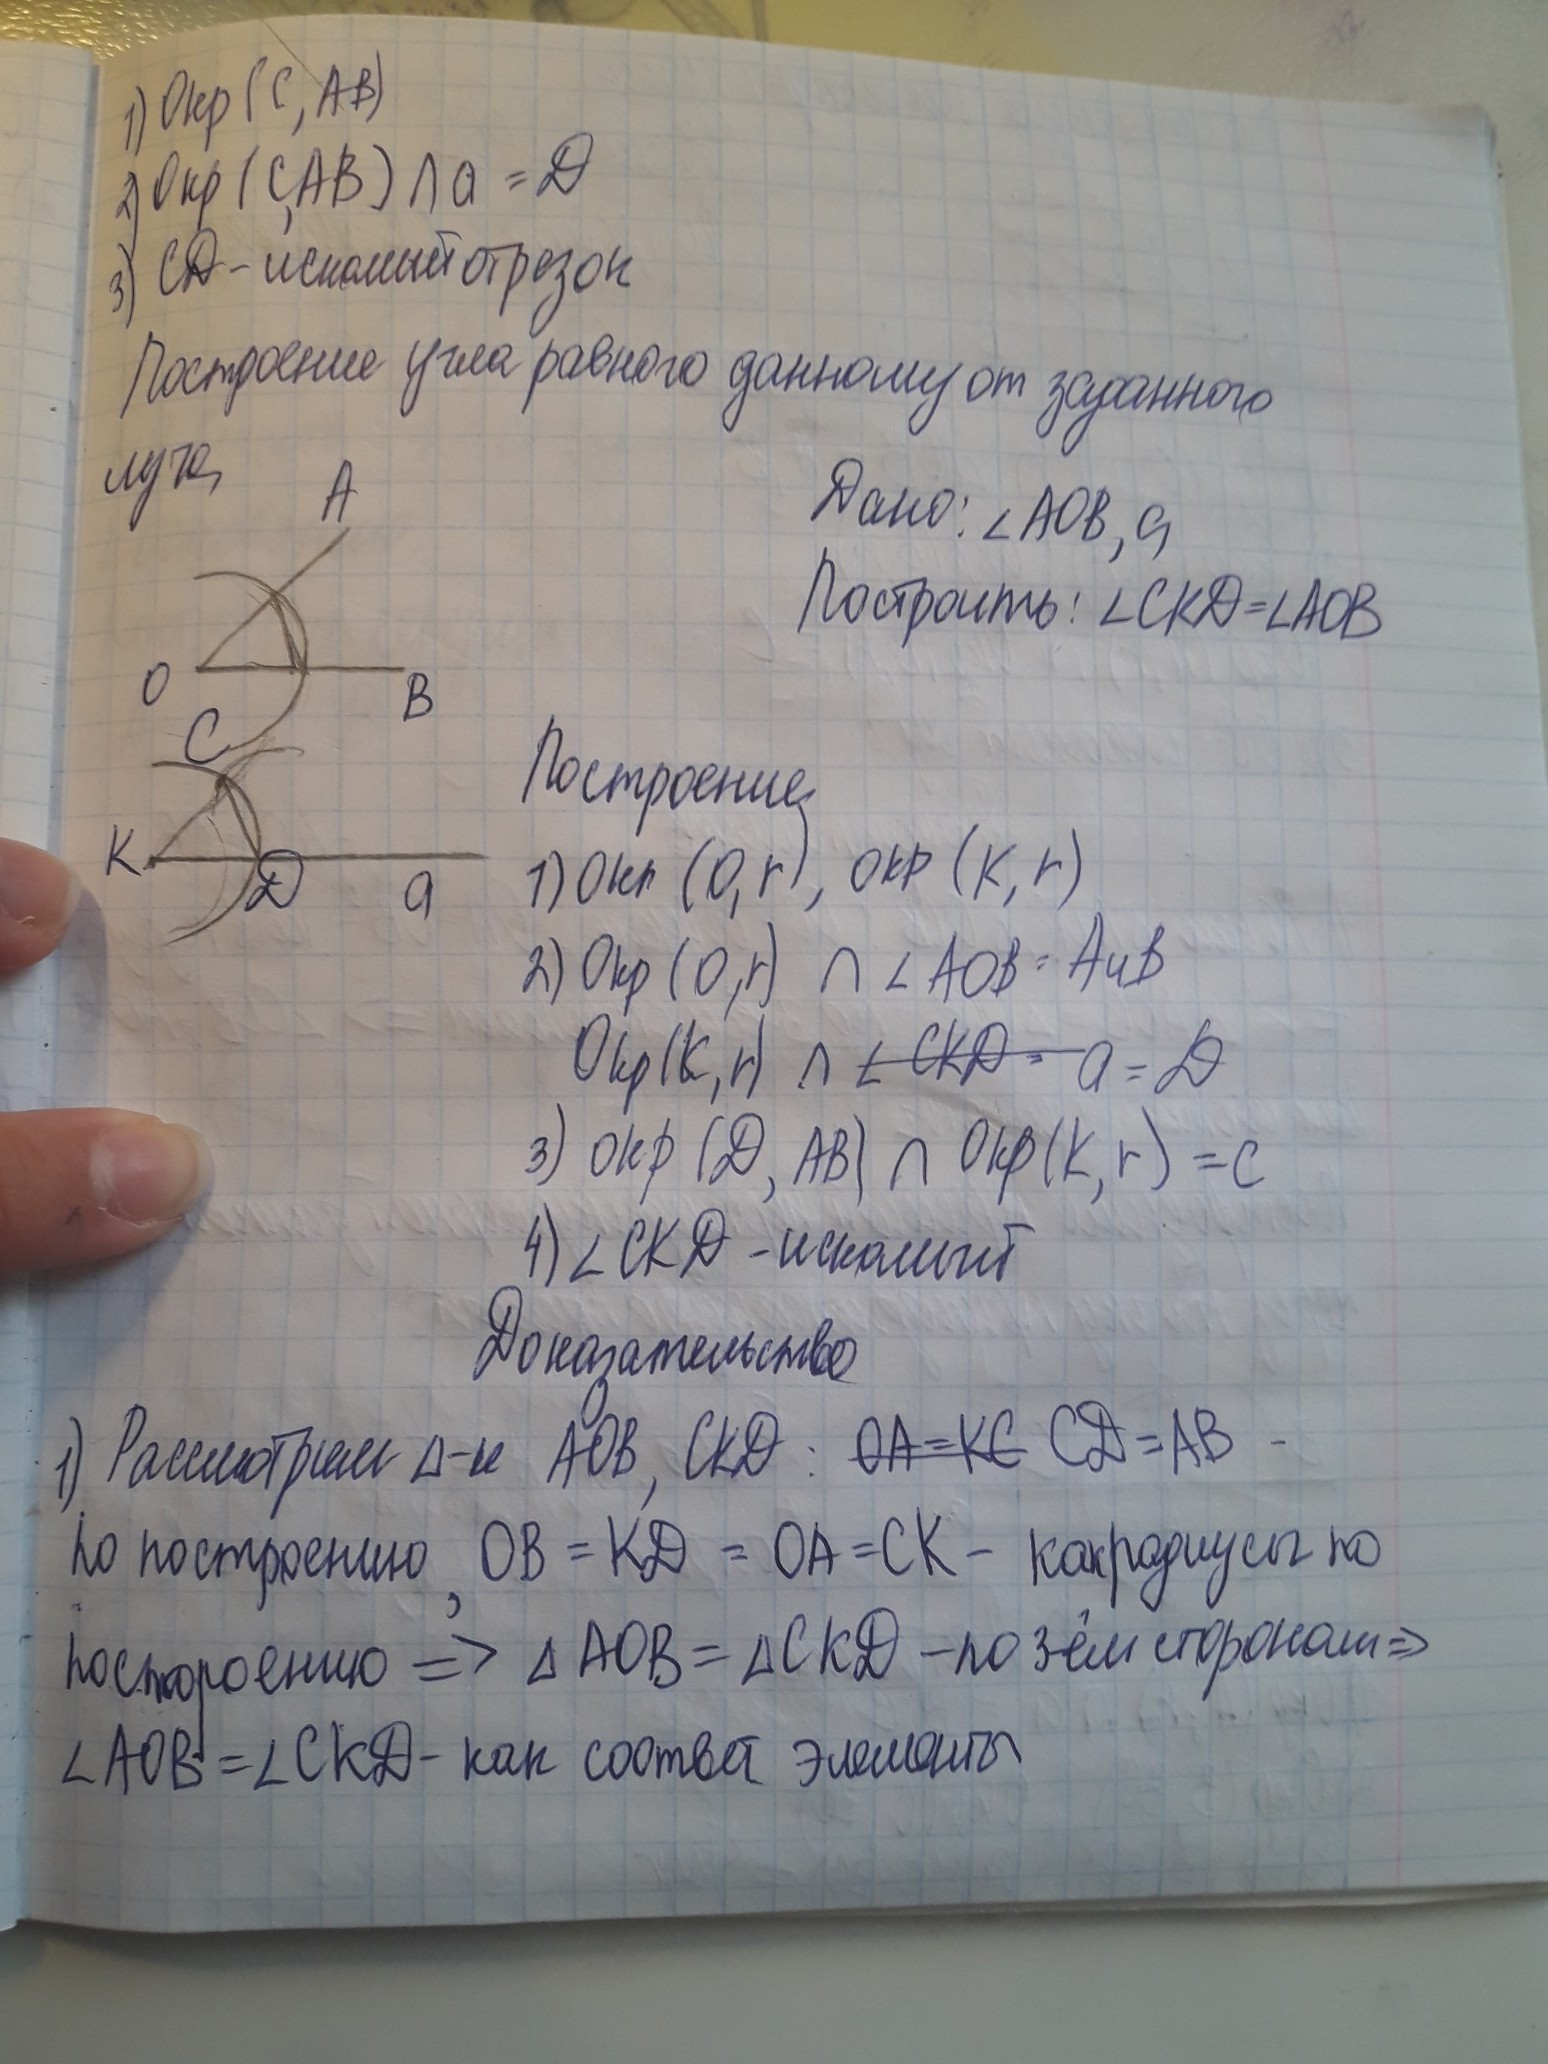 1) Окр (C, AB)
2) Окр (C, AB) ∩ a = D
3) CD - искомый отрезок
Построение угла равного данному от заданного
луча
A
Дано: ∠AOB, a
Построить: ∠CKD = ∠AOB
O
B
C
Построение
K
D
a
1) Окр (O, r), окр (K, r)
2) Окр (O, r) ∩ ∠AOB = A и B
Окр (K, r) ∩ ∠CKD = a = D
3) окр (D, AB) ∩ Окр (K, r) = C
4) ∠CKD - искомый
Доказательство
1) Рассмотрим Δ-и AOB, CKD: OA = KC CD = AB -
по построению, OB = KD = OA = CK - как радиусы по
постороению => ΔAOB = ΔCKD - по 3ём сторонам =>
∠AOB = ∠CKD - как соответ элементы